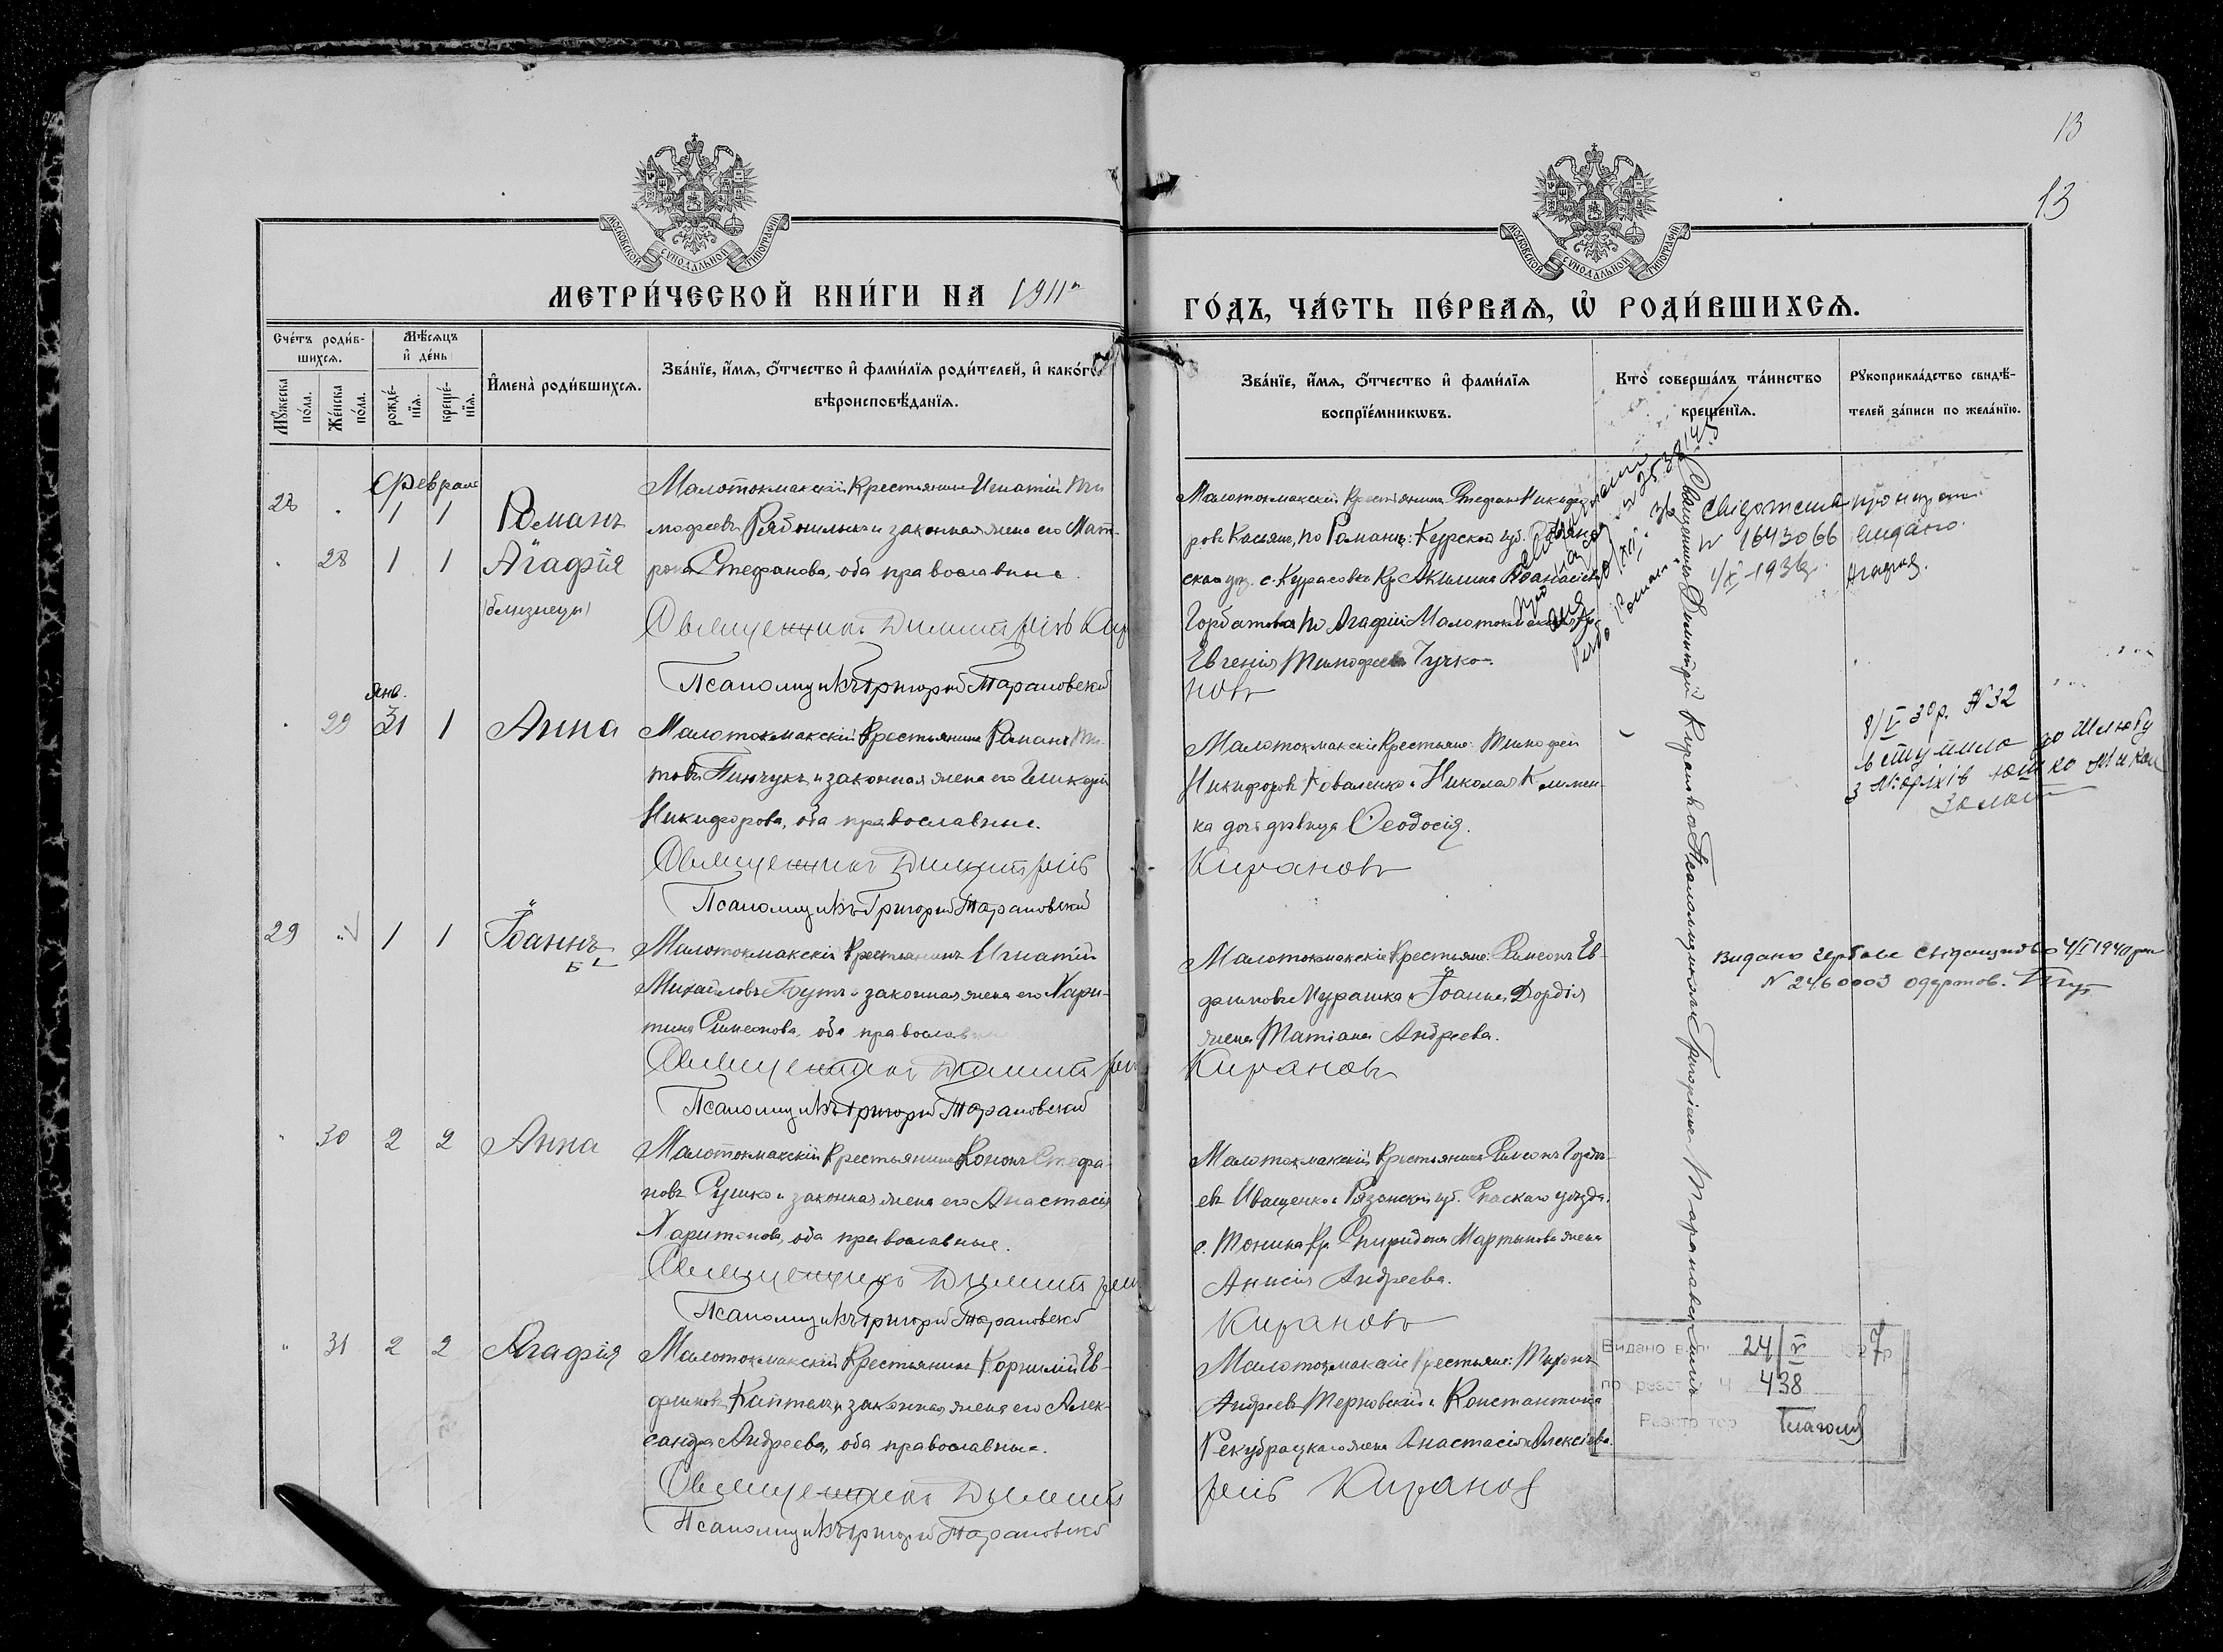 13
13
МОСКОВСКОЙ СУНОДАЛЬНОЙ ТИПОГРАФІИ
МОСКОВСКОЙ СУНОДАЛЬНОЙ ТИПОГРАФІИ
МЕТРИ́ЧЕСКОЙ КНИ́ГИ НА 1911й
ГО́ДЪ, ЧА́СТЬ ПЕ́РВАѦ, Ѡ҆ РОДИ́ВШИХСѦ.
Сче́тъ роди́в-
шихсѧ.
Мꙋ́жеска по́ла.
Же́нска по́ла.
Мѣ́сѧцъ и҆ де́нь
рожде́-
нїѧ.
креще́-
нїѧ.
И҆мена̀ роди́вшихсѧ.
Зва́нїе, и҆́мѧ, ѻ҆́тчество и҆ фами́лїѧ роди́телей, и҆ како́гѡ
вѣроисповѣ́данїѧ.
Зва́нїе, и҆́мѧ, ѻ҆́тчество и҆ фами́лїѧ
воспрїе́мникѡвъ.
Кто̀ соверша́лъ та́инство
креще́нїѧ.
Рꙋкоприкла́дство свидѣ́-
телей за́писи по жела́нїю.
Февраль
28 1 1 Романъ
Малотокмакскій Крестьянинъ Игнатій Ти
мофеевъ и законная жена его Мат-
рона Стефанова, оба православные.
28 1 1 Агафія
(близнецы)
Священникъ Димитрій Кир
Псаломщикъ Григорій Тарановскій
Малотокмакскій Крестьянинъ Стефанъ Никифо
ровъ Касьянъ, по Романѣ: Курской губ.
с. Курасовки Кр. Акилина
Горбатова по Агафіи Малотокмакская
Евгенія Тимофеева Гучко.
новъ
Свідоцтва про народж.
№ 1643066 видано
1/X-1936р. Агафія.
Янв.
29 31 1 Анна
Малотокмакскій Крестьянинъ Романъ Ти-
товъ Пинчукъ и законная жена его Гликерія
Никифорова, оба православные.
Священникъ Димитрій
Псаломщикъ Григорій Тарановскій
Малотокмакскіе Крестьяне: Тимофей
Никифоровъ Коваленко и Николая Климен-
ка дочь дѣвица Ѳеодосія.
Кирановъ
8/V 30р. № 32
вступила до шлюбу
29 1 1 Іоаннъ
Малотокмакскій Крестьянинъ Игнатій
Михайловъ Бутъ и законная жена его Хари-
тина Симеонова, оба православные
Священникъ Димитрій
Псаломщикъ Григорій Тарановскій
Малотокмакскіе Крестьяне: Симеонъ Ев-
фимовъ Мурашка и Іоанна Дордія
жена Татіана Андреева.
Кирановъ
Видано свідоцтво 4/I 1940
№ 2460003
30 2 2 Анна
Малотокмакскій Крестьянинъ Кононъ Стефа-
новъ Сушко и законная жена его Анастасія
Харитонова, оба православные.
Священникъ Димитрій
Псаломщикъ Григорій Тарановскій
Малотокмакскій Крестьянинъ Симеонъ Гордѣ-
евъ Иващенко и Рязанской губ. Спаскаго уѣзда.
с. Тонина Кр. Спиридона Мартынова жена
Анисія Андреева.
Кирановъ
31 2 2 Агафія
Малотокмакскій Крестьянинъ Корнилій Ев-
фимовъ и законная жена его Алек-
сандра Андреева, оба православные.
Священникъ Димит
Псаломщикъ Григорій Тарановскій
Малотокмакскіе Крестьяне:
Андреевъ Терновскій и Константина
жена Анастасія Алексіева.
рій Кирановъ
Священникъ Димитрій Кирановъ Псаломщикомъ Григоріемъ Тарановскимъ
Видано 24/V 1927р
по реестр. Ч 438